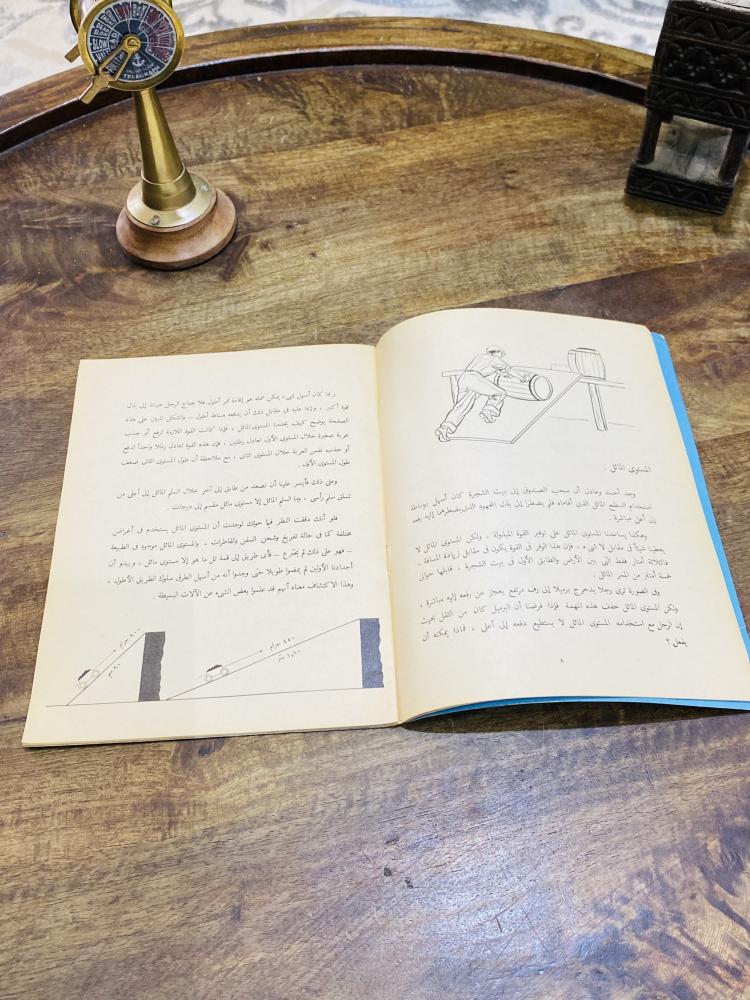 SLOW
TELEGRAPH
المستوى المائل :
وجد أحمد وعادل أن سحب الصندوق إلى بيت الشجرة كان أسهل بوساطة
استخدام السطح المائل الذى أقاماه فلم يضطرا إلى بذل المجهود الذى يضطرهما إليه رفعه
إلى أعلى مباشرة .
وهكذا يساعدنا المستوى المائل على توفير القوة المبذولة ، ولكن المستوى المائل لا
يعطينا شيئاً فى مقابل لا شىء ، فإن هذا الوفر فى القوة يكون فى مقابل زيادة المسافة ،
فالثلاثة أمتار فقط التى بين الأرض والطابق الأول فى بيت الشجرة ، قابلها حوالى
خمسة أمتار من الممر المائل .
وفى الصورة ترى رجلا يدحرج برميلا إلى رف مرتفع يعجز عن رفعه إليه مباشرة ،
ولكن المستوى المائل خفف هذه المهمة فإذا فرضنا أن البرميل كان من الثقل بحيث
إن الرجل مع استخدامه المستوى المائل لا يستطيع دفعه إلى أعلى ، فماذا يمكنه أن
يفعل ؟
٨
ربما كان أسهل شىء يمكن عمله هو إقامة ممر أطول فلا يحتاج الرجل حينئذ إلى بذل
قوة أكبر ، وإنما عليه فى مقابل ذلك أن يدفعه مسافة أطول .. والشكل المبين على هذه
الصفحة يوضح كيف يخدمنا المستوى المائل ، فإذا كانت القوة اللازمة لرفع أو جذب
عربة صغيرة خلال المستوى الأول تعادل رطلين ، فإن هذه القوة تعادل رطلا واحداً لدفع
أو جذب نفس العربة خلال المستوى الثانى ، مع ملاحظة أن طول المستوى الثانى ضعف
طول المستوى الأول .
وعلى ذلك فأيسر علينا أن نصعد من طابق إلى آخر خلال السلم المائل إلى أعلى من
تسلق سلم رأسى ، وما السلم المائل إلا مستوى مائل مقسم إلى درجات .
فلو أنك دققت النظر فيما حولك لوجدت أن المستوى المائل يستخدم فى أغراض
مختلفة كما فى حالة تفريغ وشحن السفن والقاطرات ، والمستوى المائل موجود فى الطبيعة
.. فهو على ذلك لم يخترع .. فأى طريق إلى قمة تل ما هو إلا مستوى مائل ، ويبدو أن
أجدادنا الأولين لم يمضوا طويلا حتى وجدوا أنه من أسهل الطرق سلوك الطريق الأطول ،
وهذا الاكتشاف معناه أنهم قد علموا بعض الشىء عن الآلات البسيطة .
٩٠٠ جرام
٩٠ سم
٤٥٠ جرام
١٫٨٠ متر